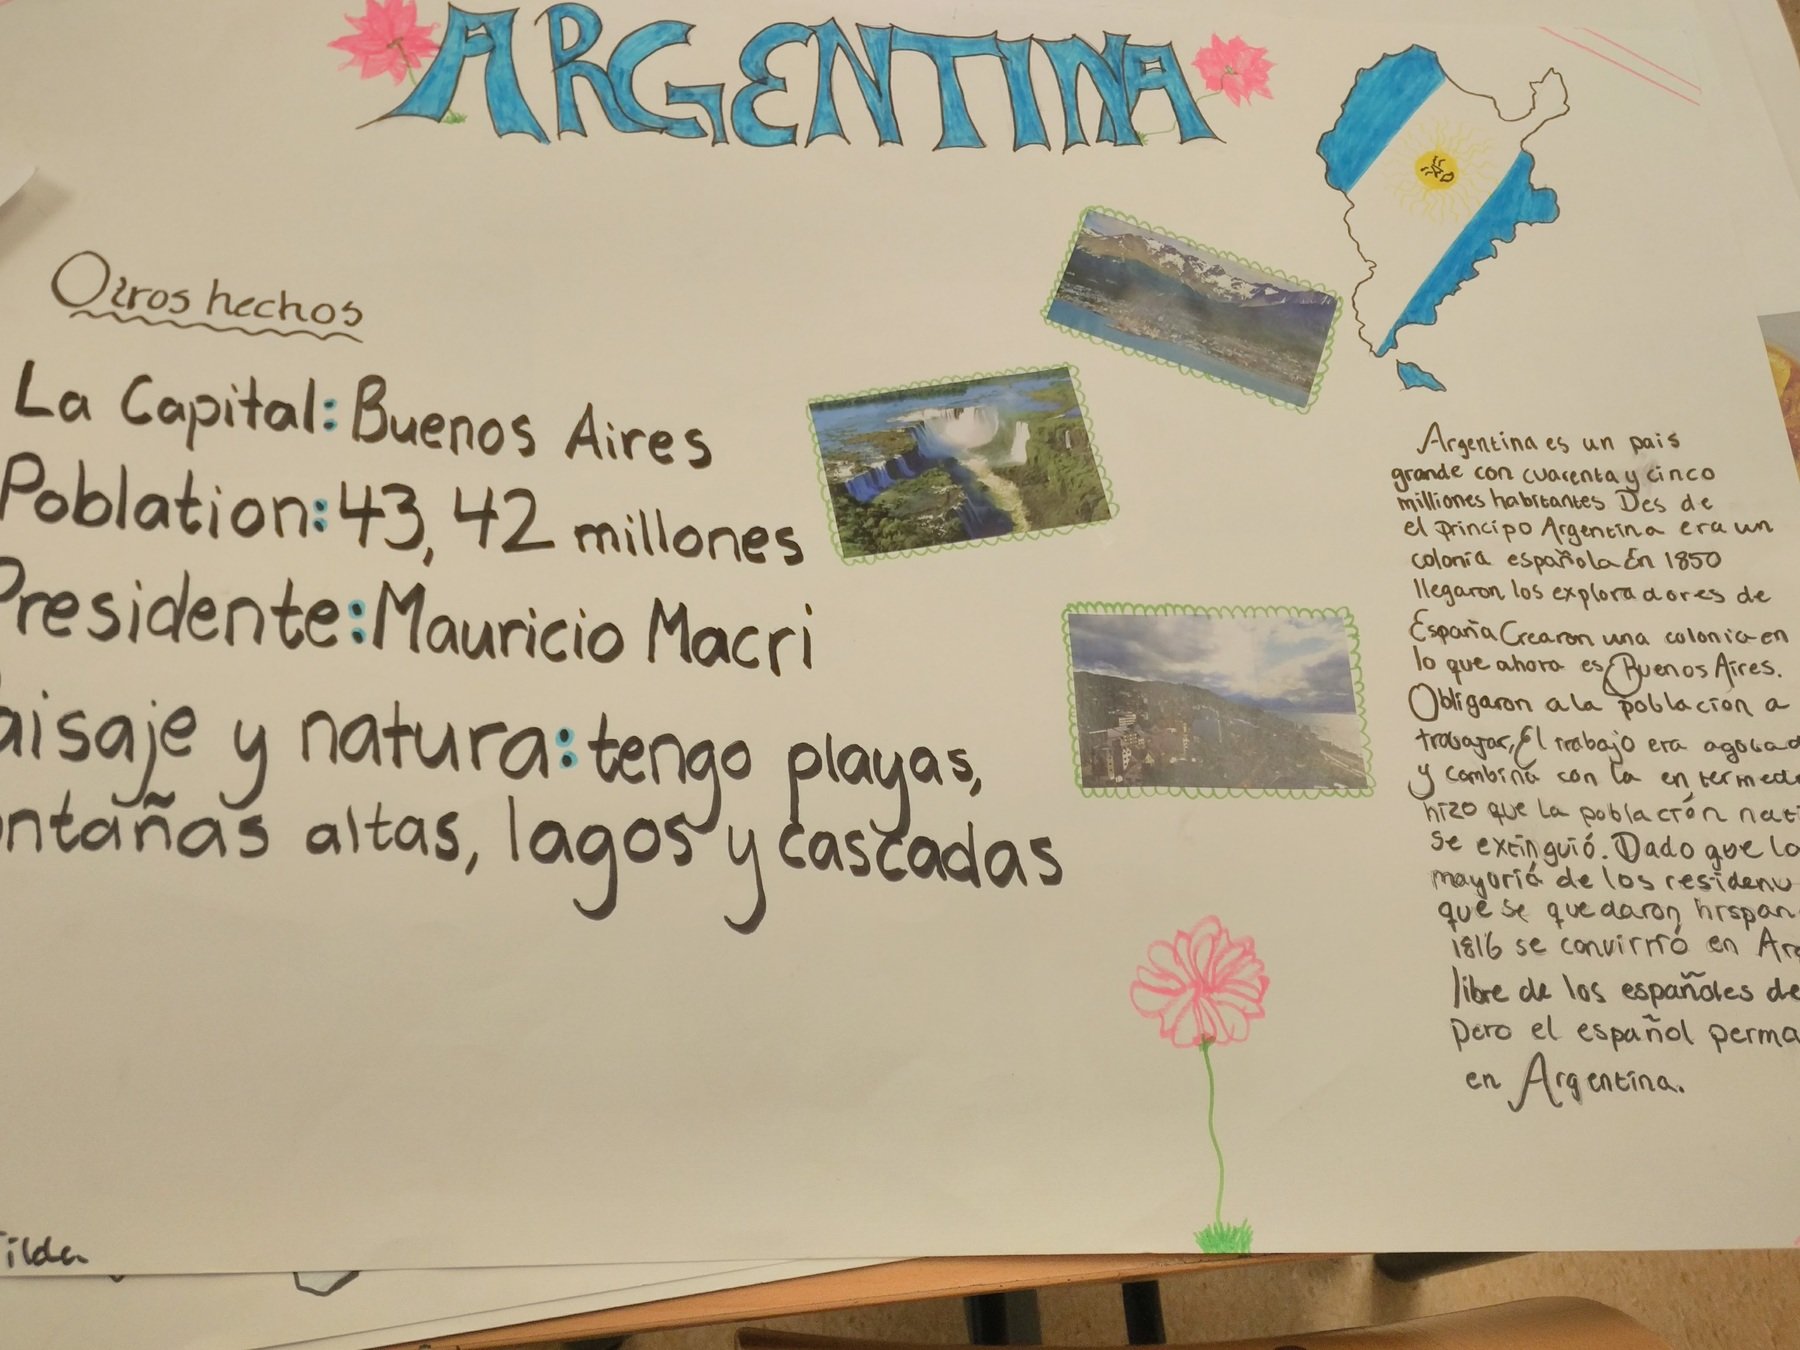 ARGENTINA
Otros hechos
La Capital: Buenos Aires
Poblation: 43,42 millones
Presidente: Mauricio Macri
aisaje y natura: tengo playas,
ntañas altas, lagos y cascadas
ilda
Argentina es un pais
grande con cuarenta y cinco
milliones habitantes Des de
el principo Argentina era un
colonia española En 1850
llegaron los exploradores de
España Crearon una colonia en
lo que ahora es Buenos Aires.
Obligaron a la poblacion a
trabajar, El trabajo era agotad
y combina con la en termeda
hizo que la población nati
se extinguió. Dado que la
mayoriá de los residen
que se quedaron hispan
1816 se convirtió en Arg
libre de los españoles de
pero el español perma
en Argentina.